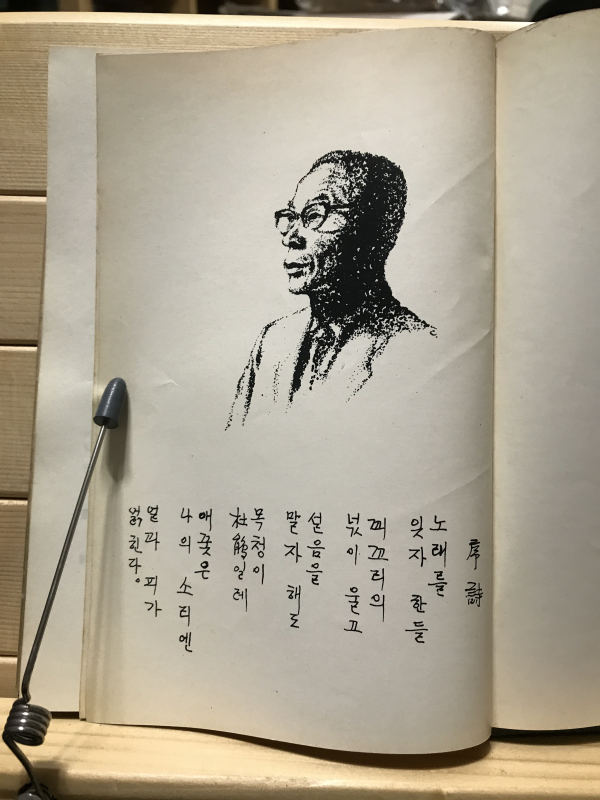 序詩
노래를
잊자 한들
꾀꼬리의
넋이 울고
설음을
말자 해도
목청이
杜鵑일레
애꽃은
나의 소리엔
얼과 피가
얽힌다。